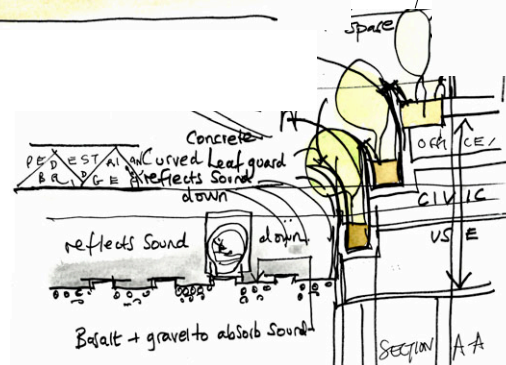 space
PEDESTRIAN
BRIDGE
Concrete
Curved Leaf guard
reflects Sound
down
OFFICE/
CIVIC
USE
reflects Sound
down
Basalt + gravel to absorb sound
SECTION AA